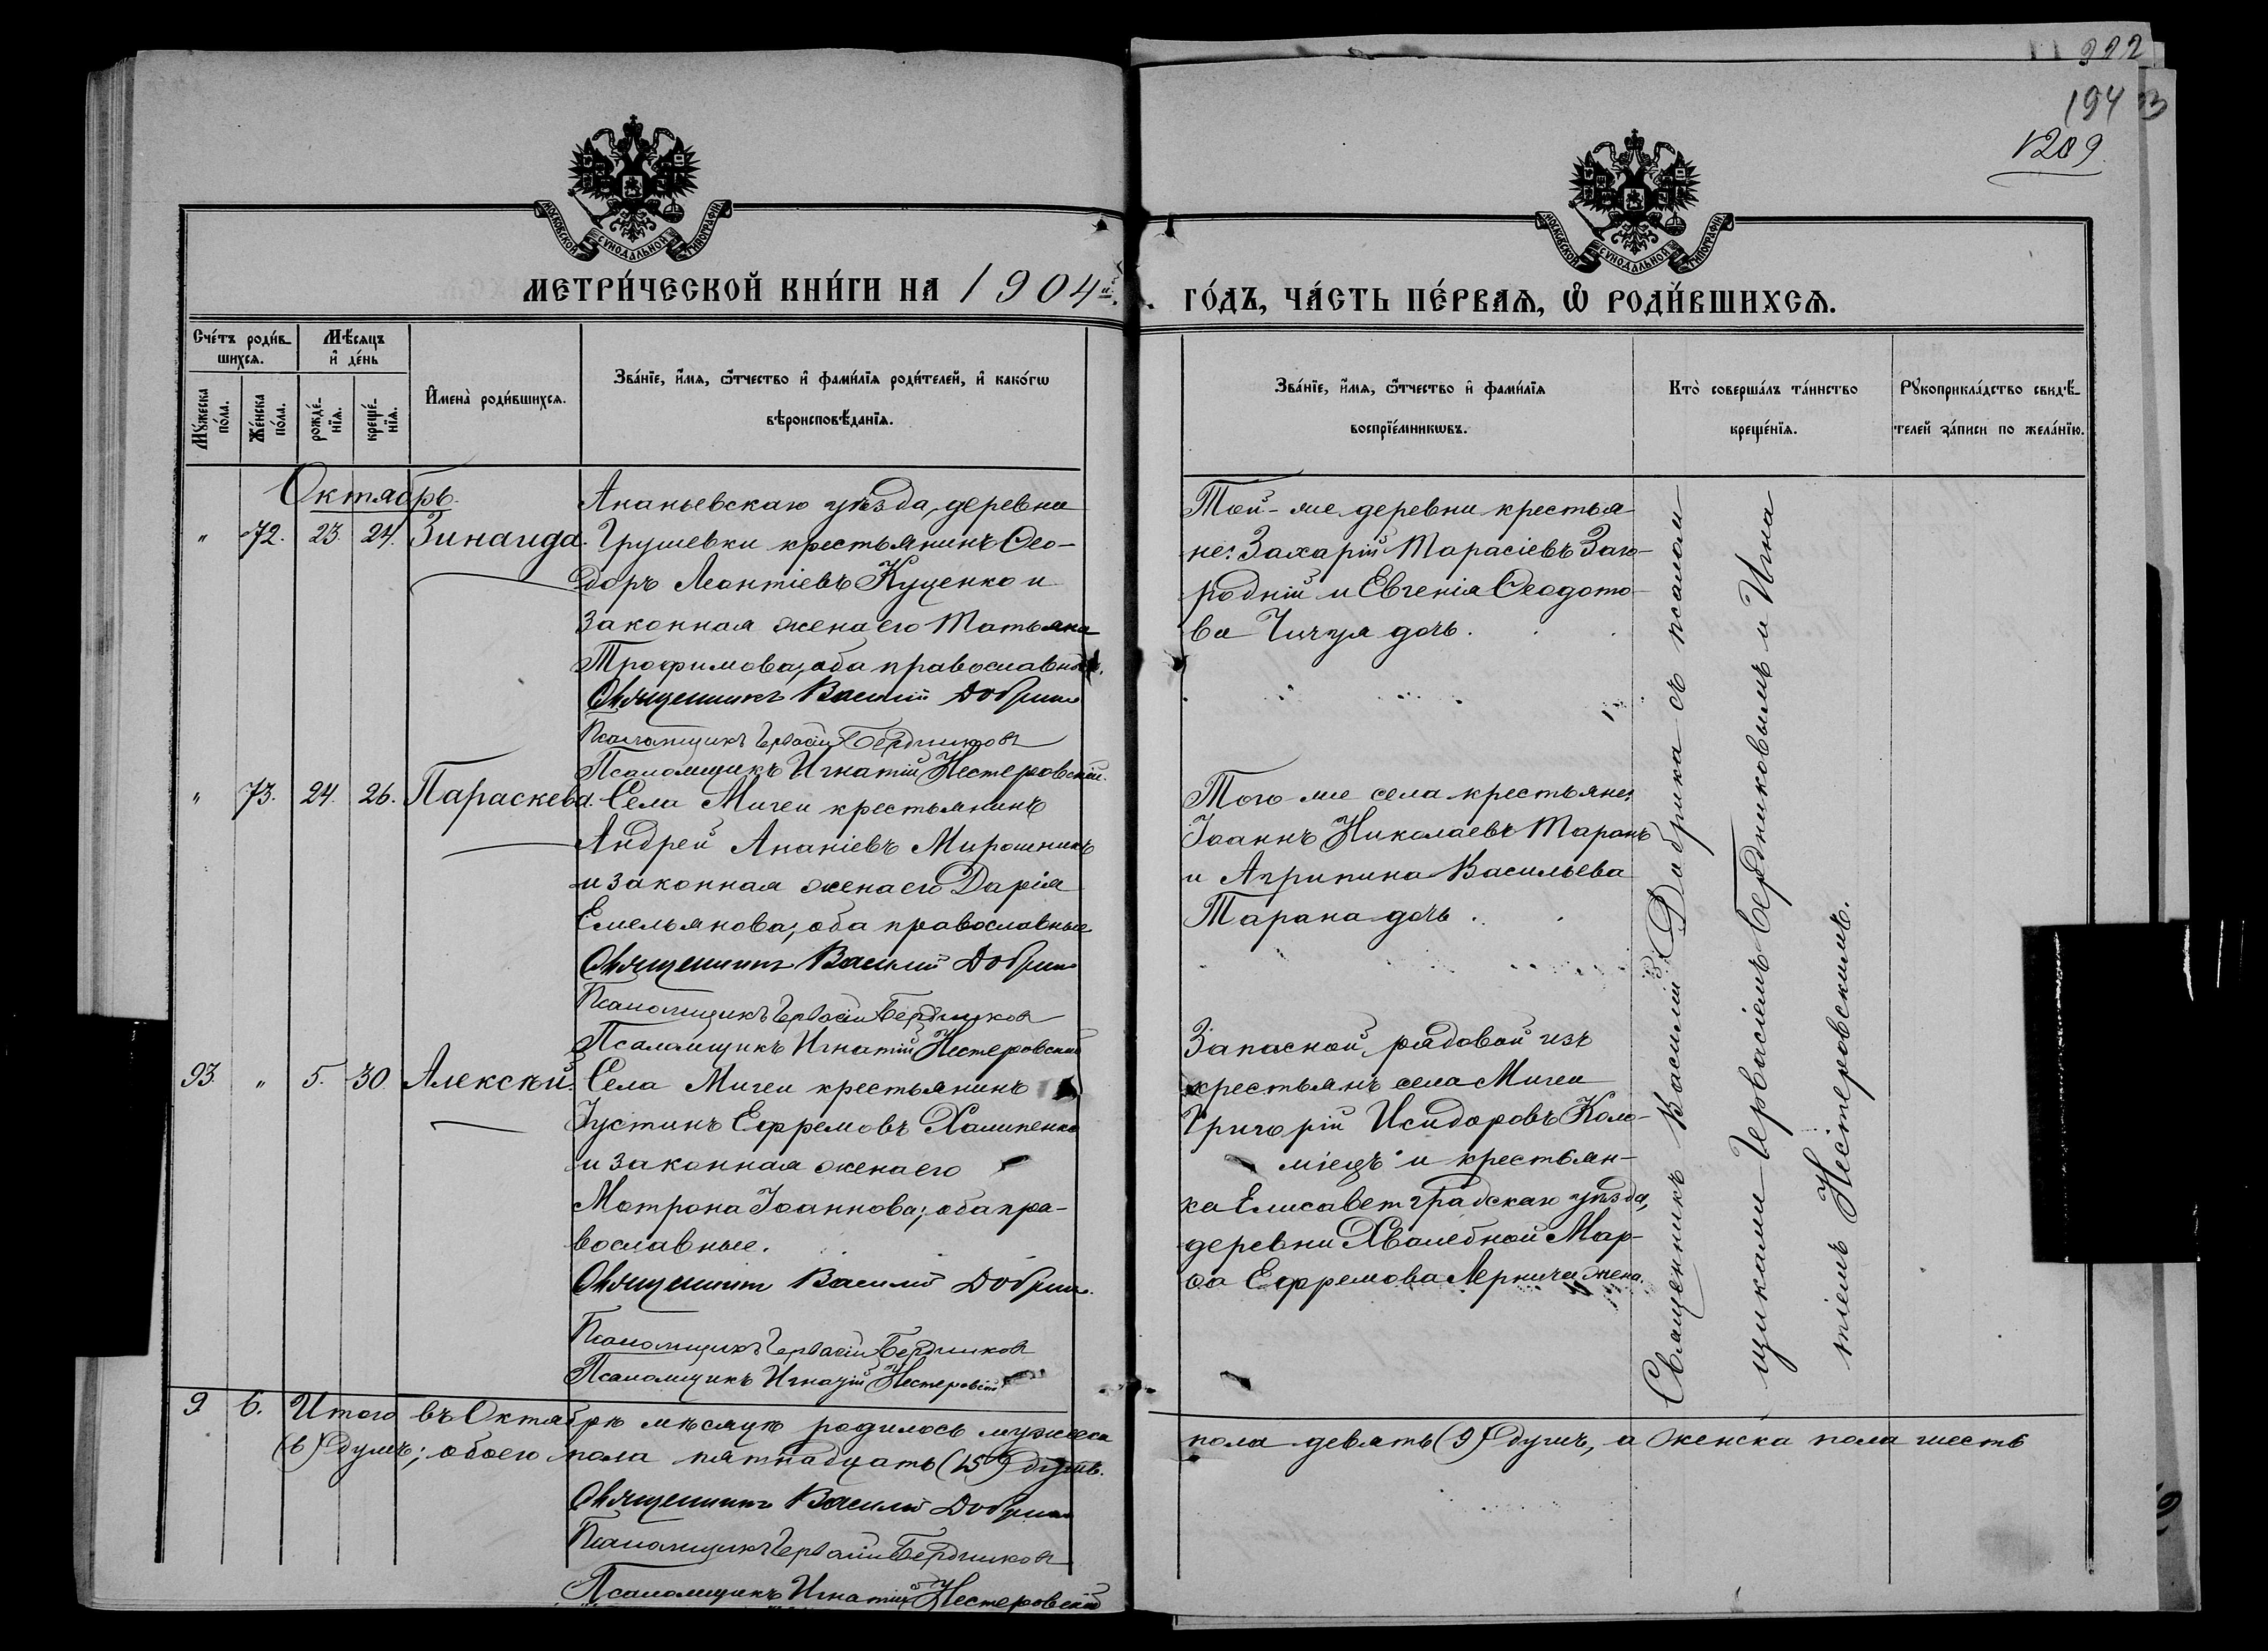 322
194
1209
МОСКОВСКОЙ СѴНОДАЛЬНОЙ ТИПОГРАФІИ
МОСКОВСКОЙ СѴНОДАЛЬНОЙ ТИПОГРАФІИ
МЕТРИ́ЧЕСКОЙ КНИ́ГИ НА 1904й
ГО́ДЪ, ЧА́СТЬ ПЕ́РВАѦ, Ѽ РОДИ́ВШИХСѦ.
Сче́тъ роди́в-
шихсѧ.
Мѣ́сѧцъ
и҆ де́нь
Мꙋ́жеска по́ла.
Же́нска по́ла.
рожде́-нїѧ.
креще́-нїѧ.
И҆мена̀ роди́вшихсѧ.
Зва́нїе, и҆́мѧ, ѻ҆́тчество и҆ фами́лїѧ роди́телей, и҆ како́гѡ
вѣроисповѣ́данїѧ.
Зва́нїе, и҆́мѧ, ѻ҆́тчество и҆ фами́лїѧ
воспрїе́мникѡвъ.
Кто̀ соверша́лъ та́инство
креще́нїѧ.
Рꙋкоприкла́дство свидѣ́-
телей за́писи по жела́нїю.
Октябрь.
" 72. 23. 24. Зинаида.
Ананьевскаго уѣзда, деревни
Грушевки крестьянинъ Ѳео-
доръ Леонтіевъ Куценко и
законная жена его Татьяна
Трофимова; оба православные.
Священникъ Василій Добрика
Псаломщикъ Гервасій Бердниковъ
Псаломщикъ Игнатій Нестеровскій.
Той-же деревни крестья-
не: Захарій Тарасіевъ Заго-
родній и Евгенія Ѳеодото-
ва Чичуя дочь.
" 73. 24. 26. Параскева.
Села Мигеи крестьянинъ
Андрей Ананіевъ Мирошникъ
и законная жена его Дарія
Емельянова; оба православные
Священникъ Василій Добрика
Псаломщикъ Гервасій Бердниковъ
Псаломщикъ Игнатій Нестеровскій
Того-же села крестьяне:
Іоаннъ Николаевъ Таранъ
и Агрипина Васильева
Тарана дочь.
93. " 5. 30. Алексѣй.
Села Мигеи крестьянинъ
Іустинъ Ефремовъ Халипенко
и законная жена его
Матрона Іоаннова; оба пра-
вославные.
Священникъ Василій Добрика.
Псаломщикъ Гервасій Бердниковъ
Псаломщикъ Игнатій Нестеровскій
Запасной рядовой изъ
крестьянъ села Мигеи
Григорій Исидоровъ Коло-
міецъ и крестьян-
ка Елисаветградскаго уѣзда,
деревни Хвалебной Мар-
ѳа Ефремова жена.
Священникъ Василій Добрика съ псалом-
щиками Гервасіемъ Бердниковымъ и Игна-
тіемъ Нестеровскимъ.
9. 6. Итого въ Октябрѣ мѣсяцѣ родилось мужеска
пола девять (9) душъ, а женска пола шесть
(6) душъ; обоего пола пятнадцать (15) душъ.
Священникъ Василій Добрика
Псаломщикъ Гервасій Бердниковъ
Псаломщикъ Игнатій Нестеровскій